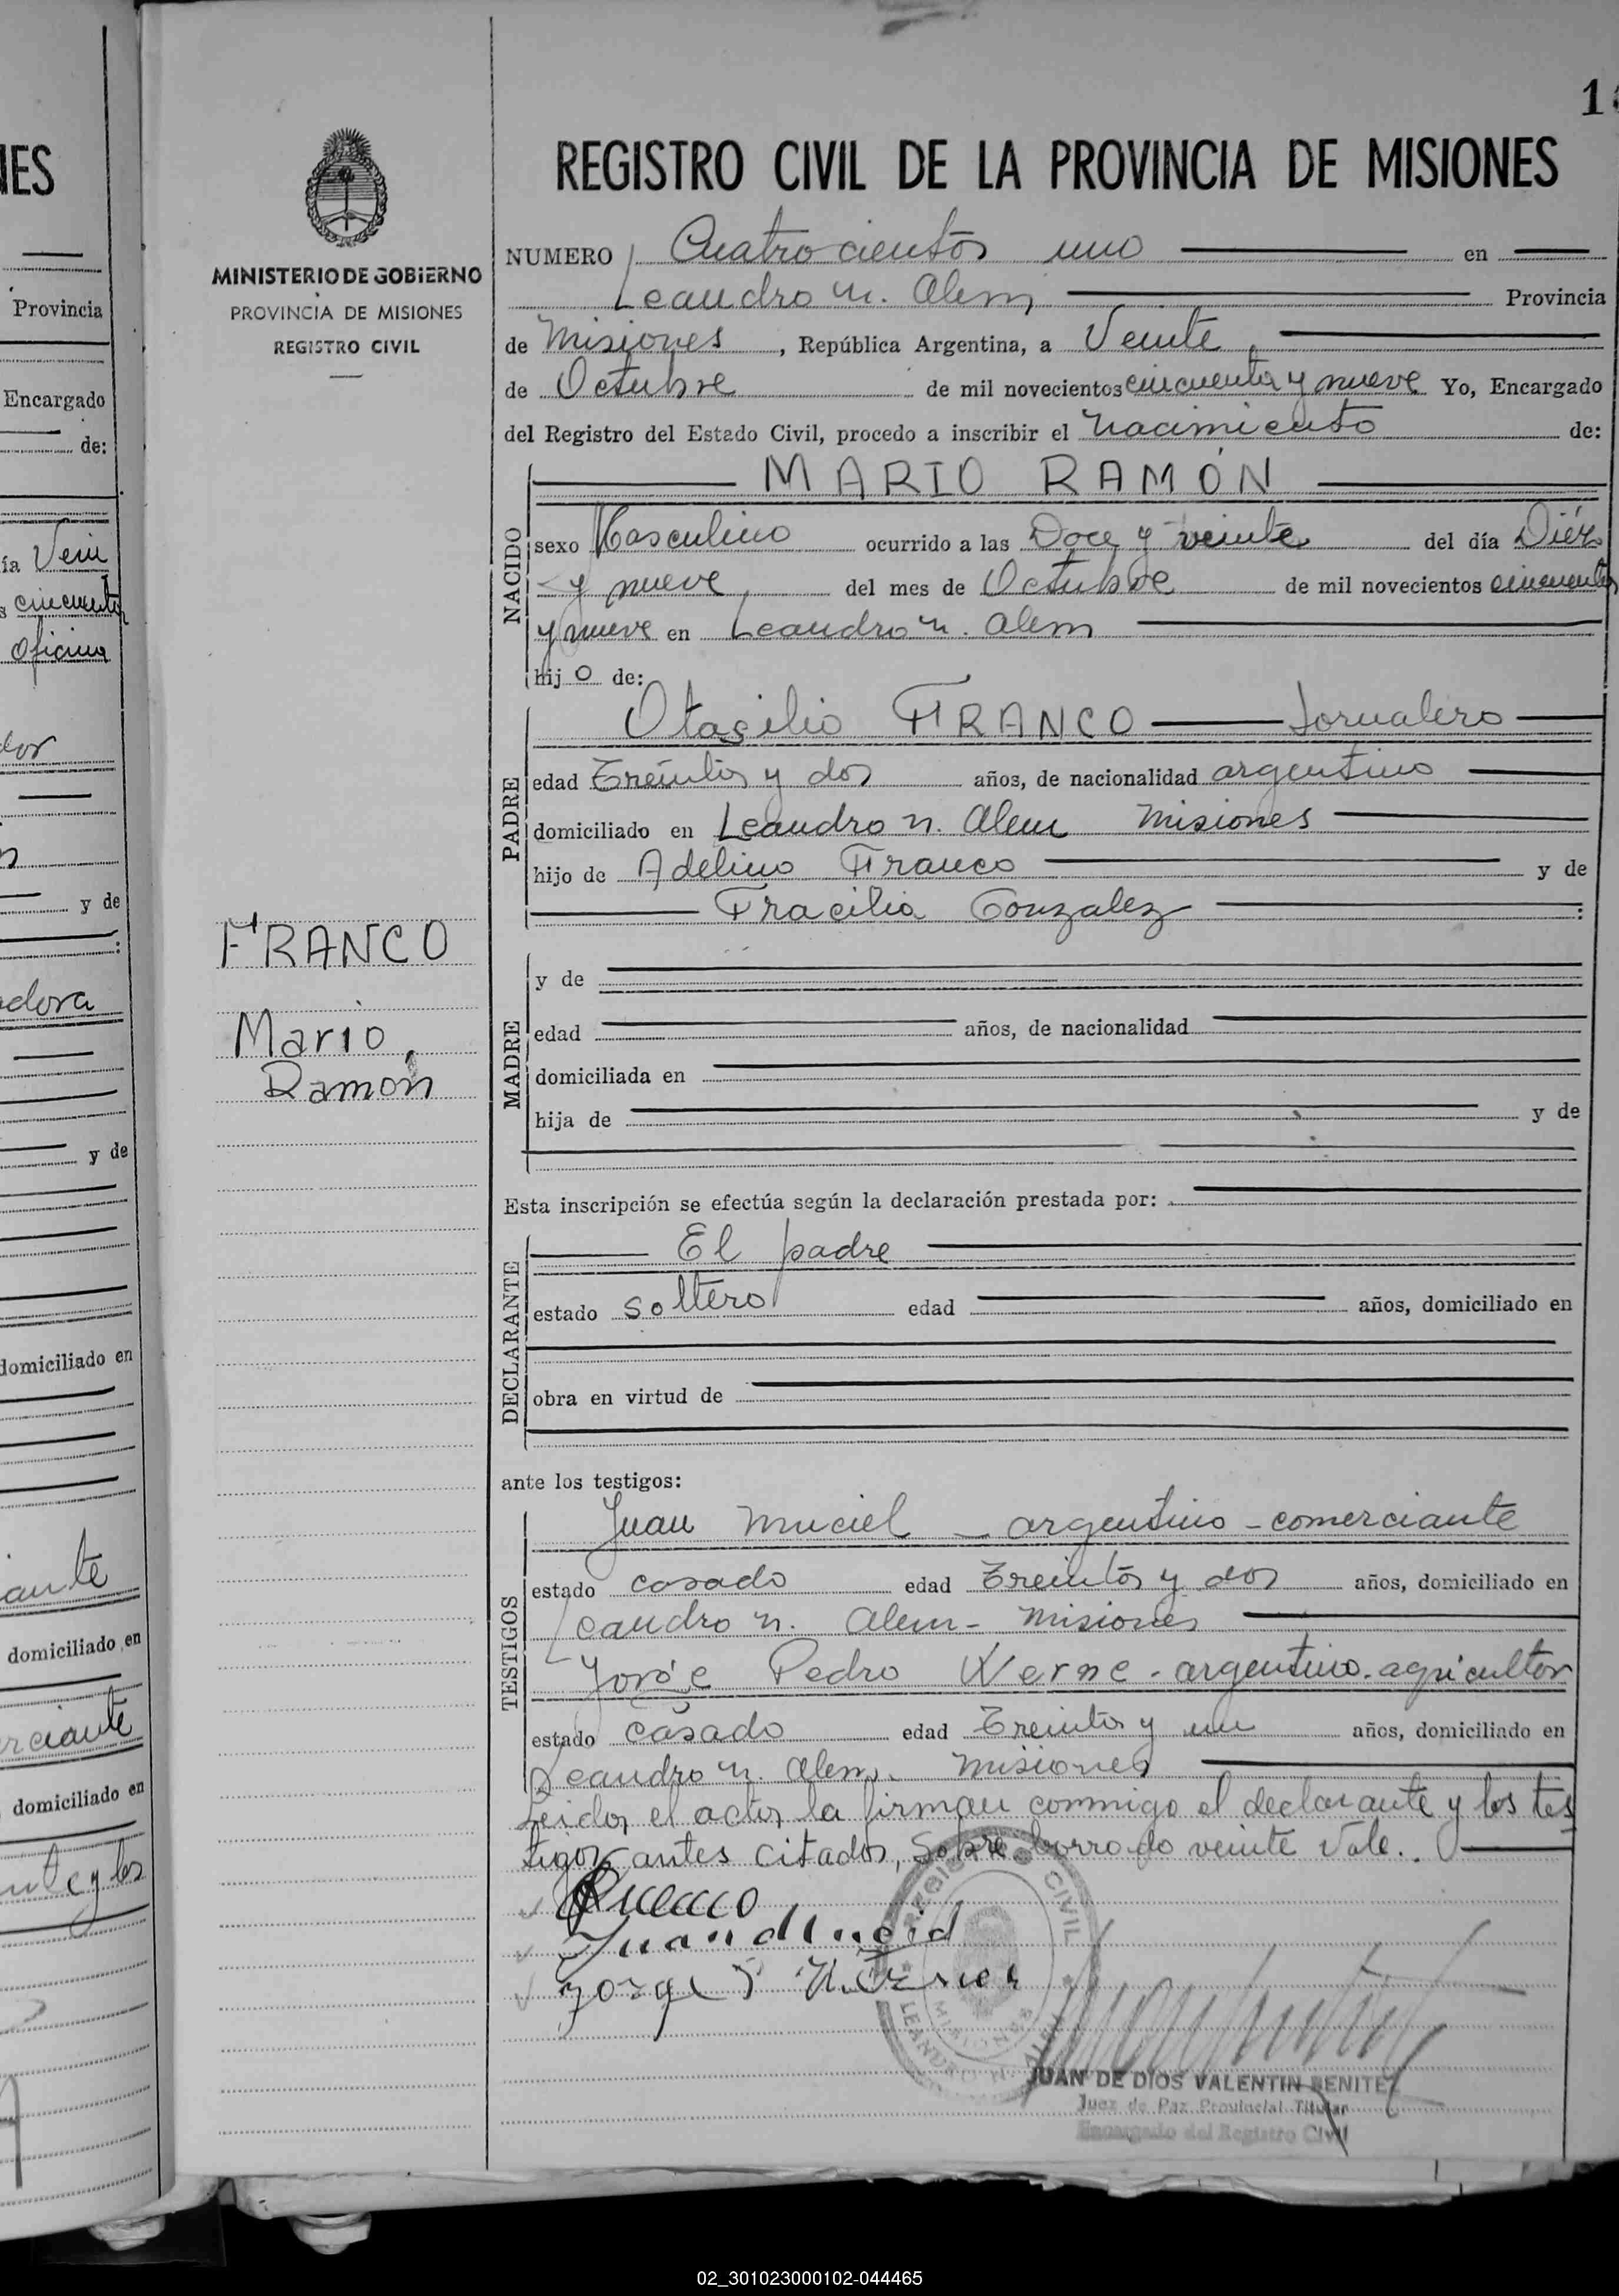 NES
Provincia
Encargado
de:
ía Vein
s cincuenta
Oficina
dor
y de
:
adora
y de
domiciliado en
ante
domiciliado en
erciante
domiciliado en
nte y los
MINISTERIO DE GOBIERNO
PROVINCIA DE MISIONES
REGISTRO CIVIL
FRANCO
Mario
Ramón
1
REGISTRO CIVIL DE LA PROVINCIA DE MISIONES
NUMERO Cuatrocientos uno en
Leandro N. Alem Provincia
de Misiones, República Argentina, a Veinte
de Octubre de mil novecientos cincuenta y nueve Yo, Encargado
del Registro del Estado Civil, procedo a inscribir el nacimiento de:
NACIDO
MARIO RAMÓN
sexo Masculino ocurrido a las Doce y veinte del día Diéz
y nueve del mes de Octubre de mil novecientos cincuenta
y nueve en Leandro N. Alem
hijo de:
PADRE
Otasilio FRANCO Jornalero
edad Treinta y dos años, de nacionalidad argentino
domiciliado en Leandro N. Alem Misiones
hijo de Adelino Franco y de
Fracilia Gonzalez :
MADRE
y de
edad años, de nacionalidad
domiciliada en
hija de y de
Esta inscripción se efectúa según la declaración prestada por:
DECLARANTE
El padre
estado soltero edad años, domiciliado en
obra en virtud de
ante los testigos:
TESTIGOS
Juan Muciel - argentino - comerciante
estado casado edad Treinta y dos años, domiciliado en
Leandro N. Alem - Misiones
Pedro Werne - argentino - agricultor
estado Casado edad Treinta y un años, domiciliado en
Leandro N. Alem. Misiones
Leida el acta la firman conmigo el declarante y los tes
tigos antes citados, Sobre borrado veinte Vale.
REGISTRO CIVIL
LEANDRO N. ALEM
MISIONES
JUAN DE DIOS VALENTIN BENITEZ
Juez de Paz Provincial Titular
Encargado del Registro Civil
02_301023000102-044465